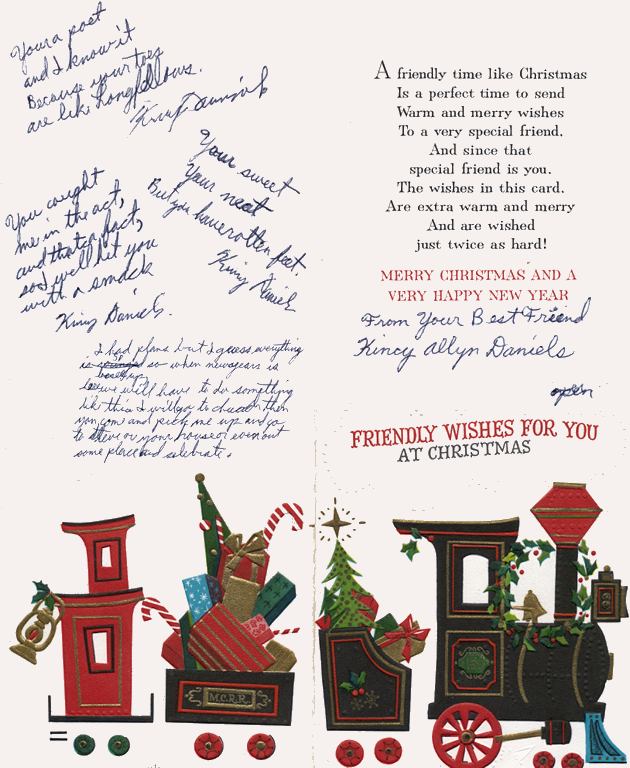 Your a poet
and I know it
Because your toes
are like Longfellows.
Kincy Daniels
Your sweet
Your neat
But you have rotten feet
Kincy Daniels
You caught
me in the act,
and thats a fact,
so I will hit you
with a smack
Kincy Daniels.
I had plans but I guess everything
is so when newyears is
we will have to do something
like this I will go to church then
you come and pick me up and go
to Steve or your house or even out
some place and selebrate.
A friendly time like Christmas
Is a perfect time to send
Warm and merry wishes
To a very special friend,
And since that
special friend is you.
The wishes in this card,
Are extra warm and merry
And are wished
just twice as hard!
MERRY CHRISTMAS AND A
VERY HAPPY NEW YEAR
From Your Best Friend
Kincy Allyn Daniels
open
FRIENDLY WISHES FOR YOU
AT CHRISTMAS
M.C.R.R.